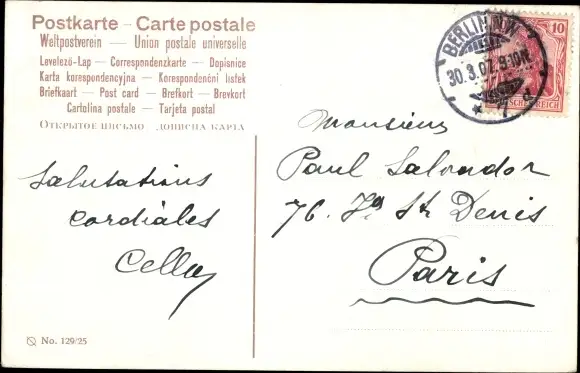 Postkarte — Carte postale
Weltpostverein — Union postale universelle
Levelező-Lap — Correspondenzkarte — Dopisnice
Karta korespondencyjna — Korespondenční lístek
Briefkaart — Post card — Brefkort — Brevkort
Cartolina postale — Tarjeta postal
Открытое письмо — дописна карта
BERLIN.NW
30.3.07. 9-10N.
* 7 d
10
Monsieur
Paul Salvador
76. Fg St Denis
Paris
Salutations
cordiales
No. 129/25